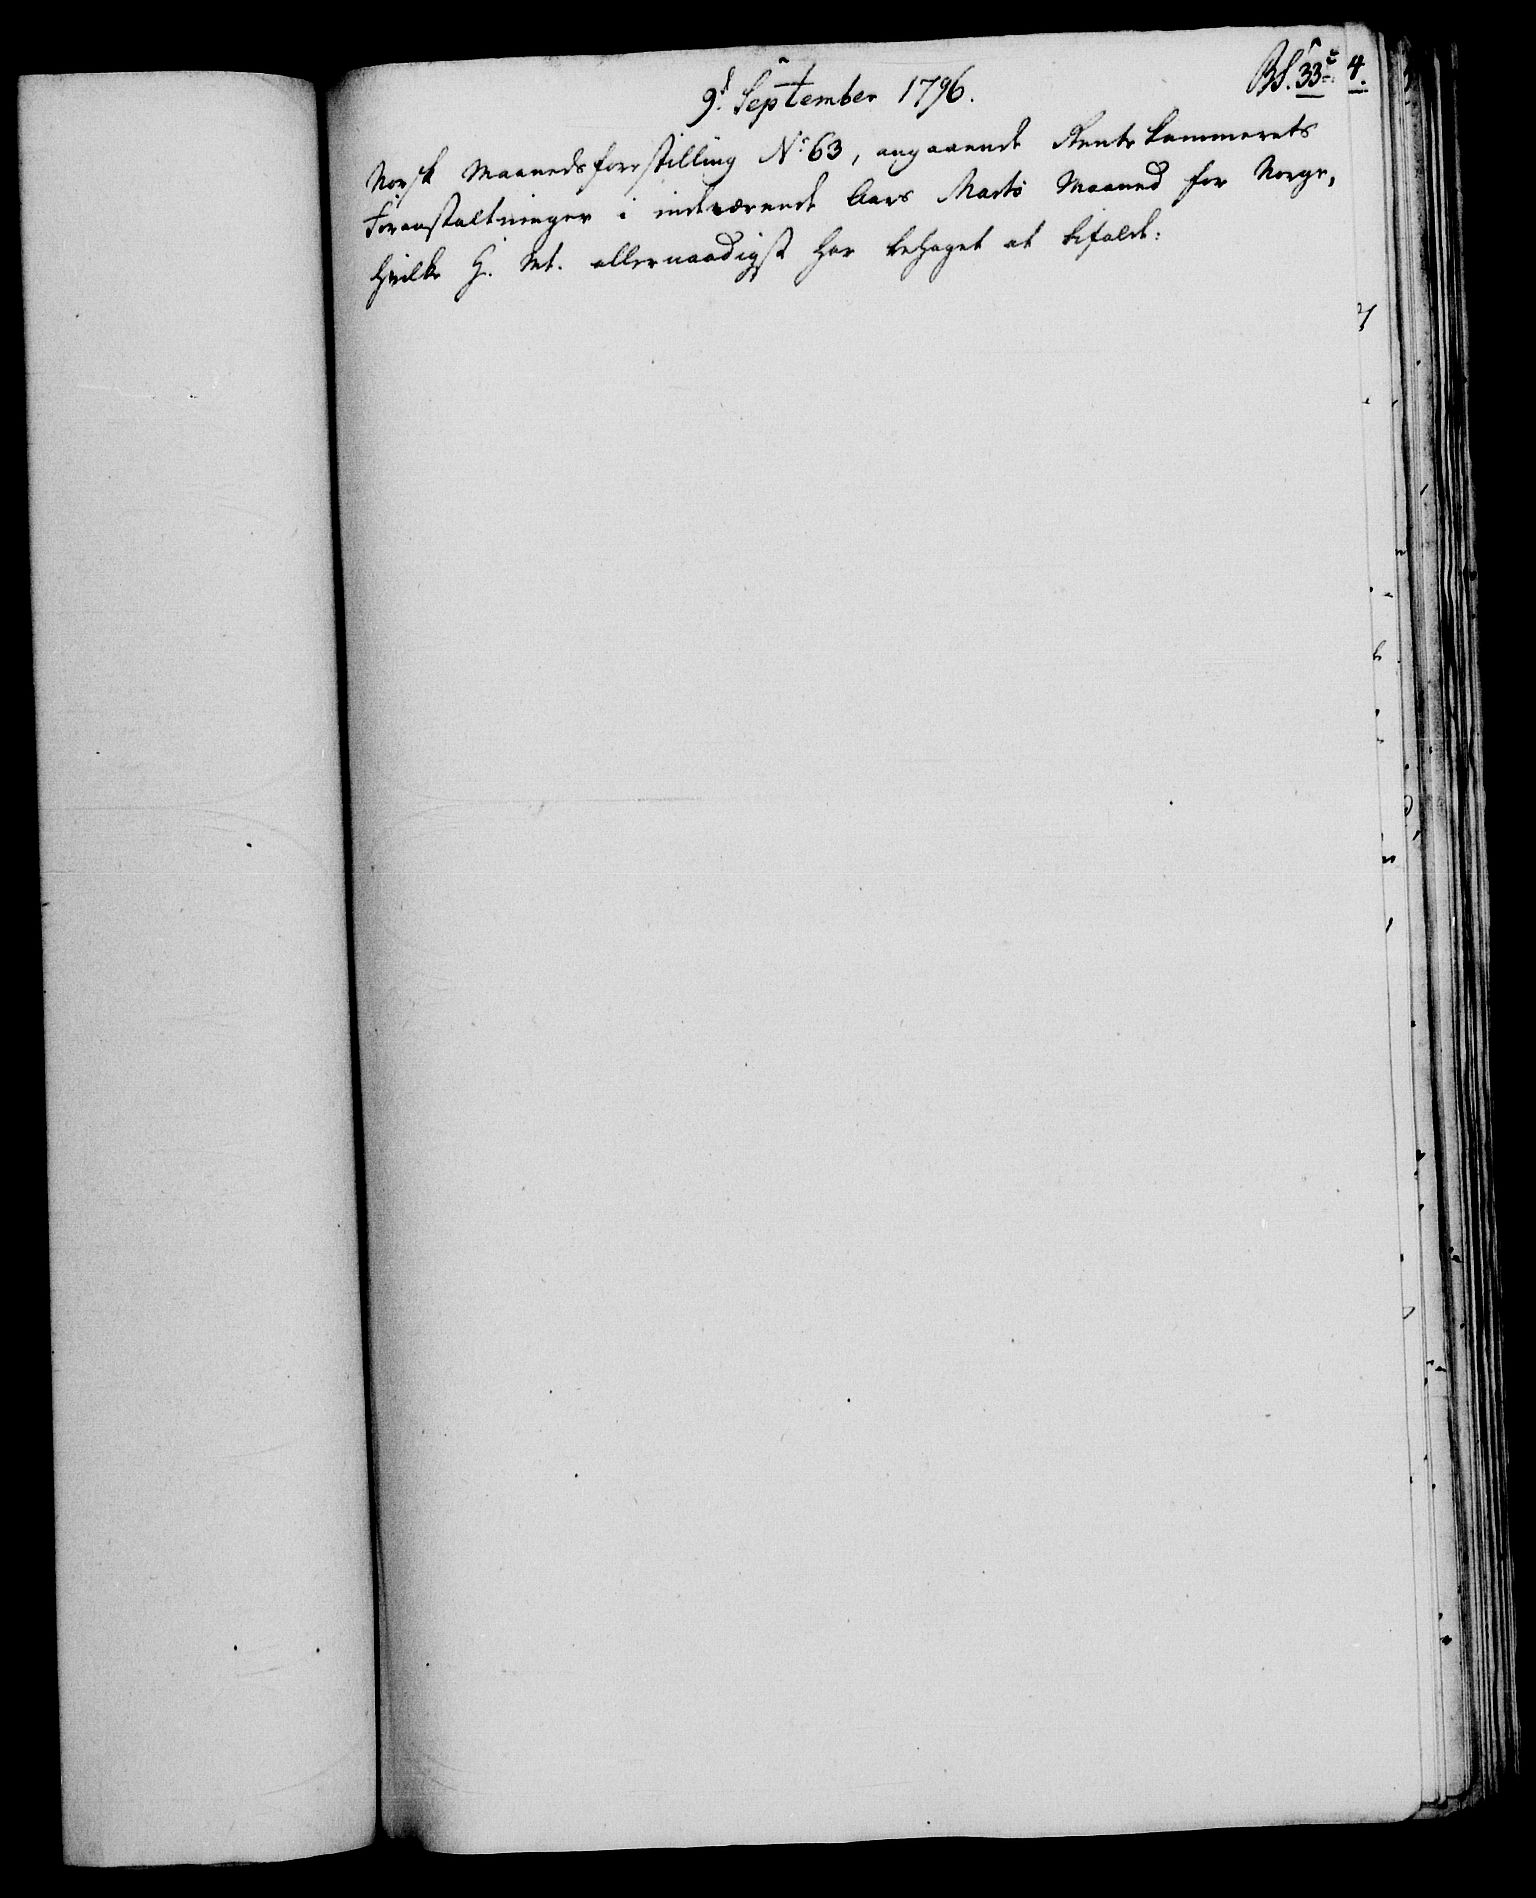 9d. September 1796.
Norsk Maanedsforestilling No. 63, angaaende Rente Kammerets
Foranstaltninger i indeværende Aars Marts Maaned for Norge,
hvilke H. Mt. allernaadigst har behaget at bifalde: